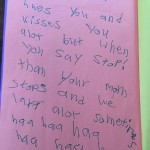 hugs You and
kisses You
alot but when
you say stop!
than Your mom
stops and we
lahf alot sometimes
haa haa haa
haa haa